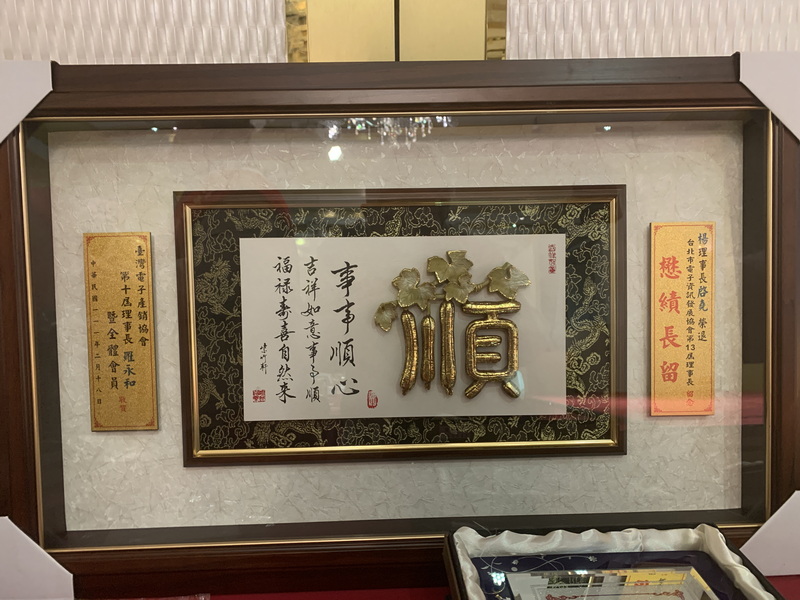 楊理事長啓堯 榮退
台北市電子資訊發展協會第13屆理事長 留念
懋績長留
順
事事順心
吉祥如意事事順
福祿壽喜自然來
臺灣電子產銷協會
第十屆理事長 羅永和
暨全體會員 敬賀
中華民國一一一年二月十八日